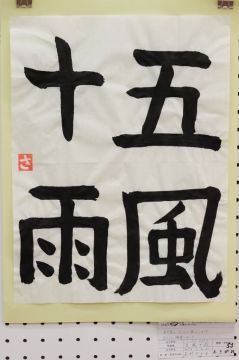 五風
十雨
さ